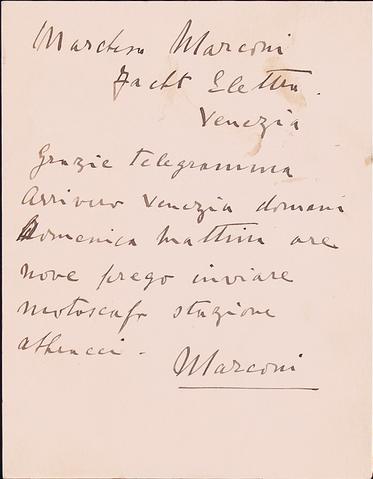 Marchesa Marconi
Yacht Elettra.
Venezia
Grazie telegramma
Arrivero Venezia domani
Domenica mattina ore
nove prego inviare
motoscafo stazione
Marconi